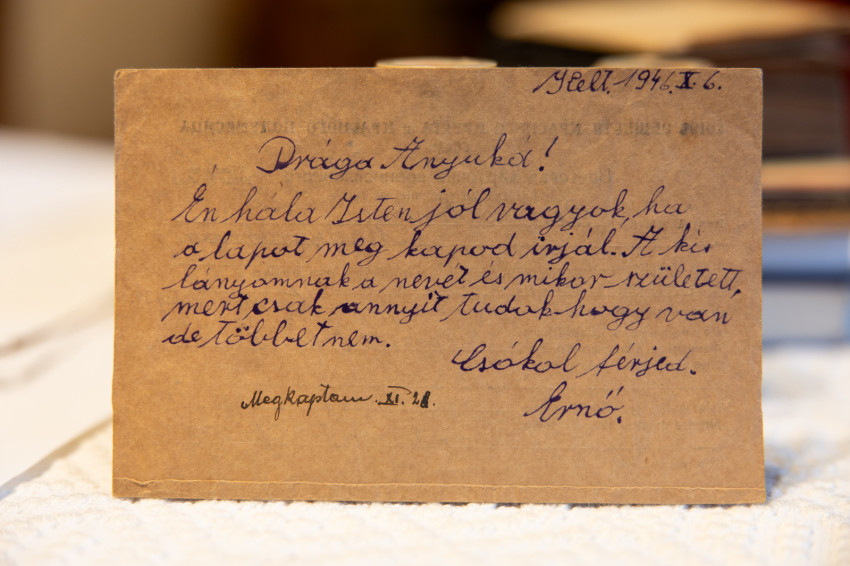 Kelt. 1946.X.6.
Drága Anyuká!
Én hála Isten jól vagyok, ha
a lapot meg kapod irjál. A kis
lányomnak a nevét és mikor született,
mert csak annyit tudok hogy van
de többet nem.
Csókol férjed.
Ernő.
Megkaptam. XI. 28.